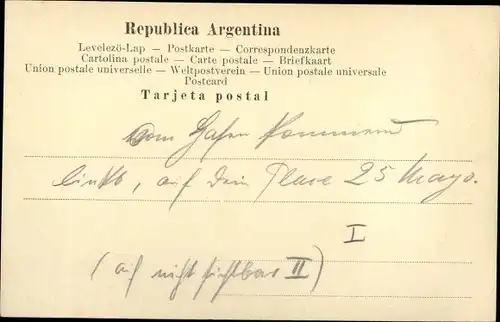 Republica Argentina
Levelezö-Lap — Postkarte — Correspondenzkarte
Cartolina postale — Carte postale — Briefkaart
Union postale universelle — Weltpostverein — Union postale universale
Postcard
Tarjeta postal
vom Hafen kommend
links, auf dem Place 25 Mayo.
I
(auf nicht sichtbar II)